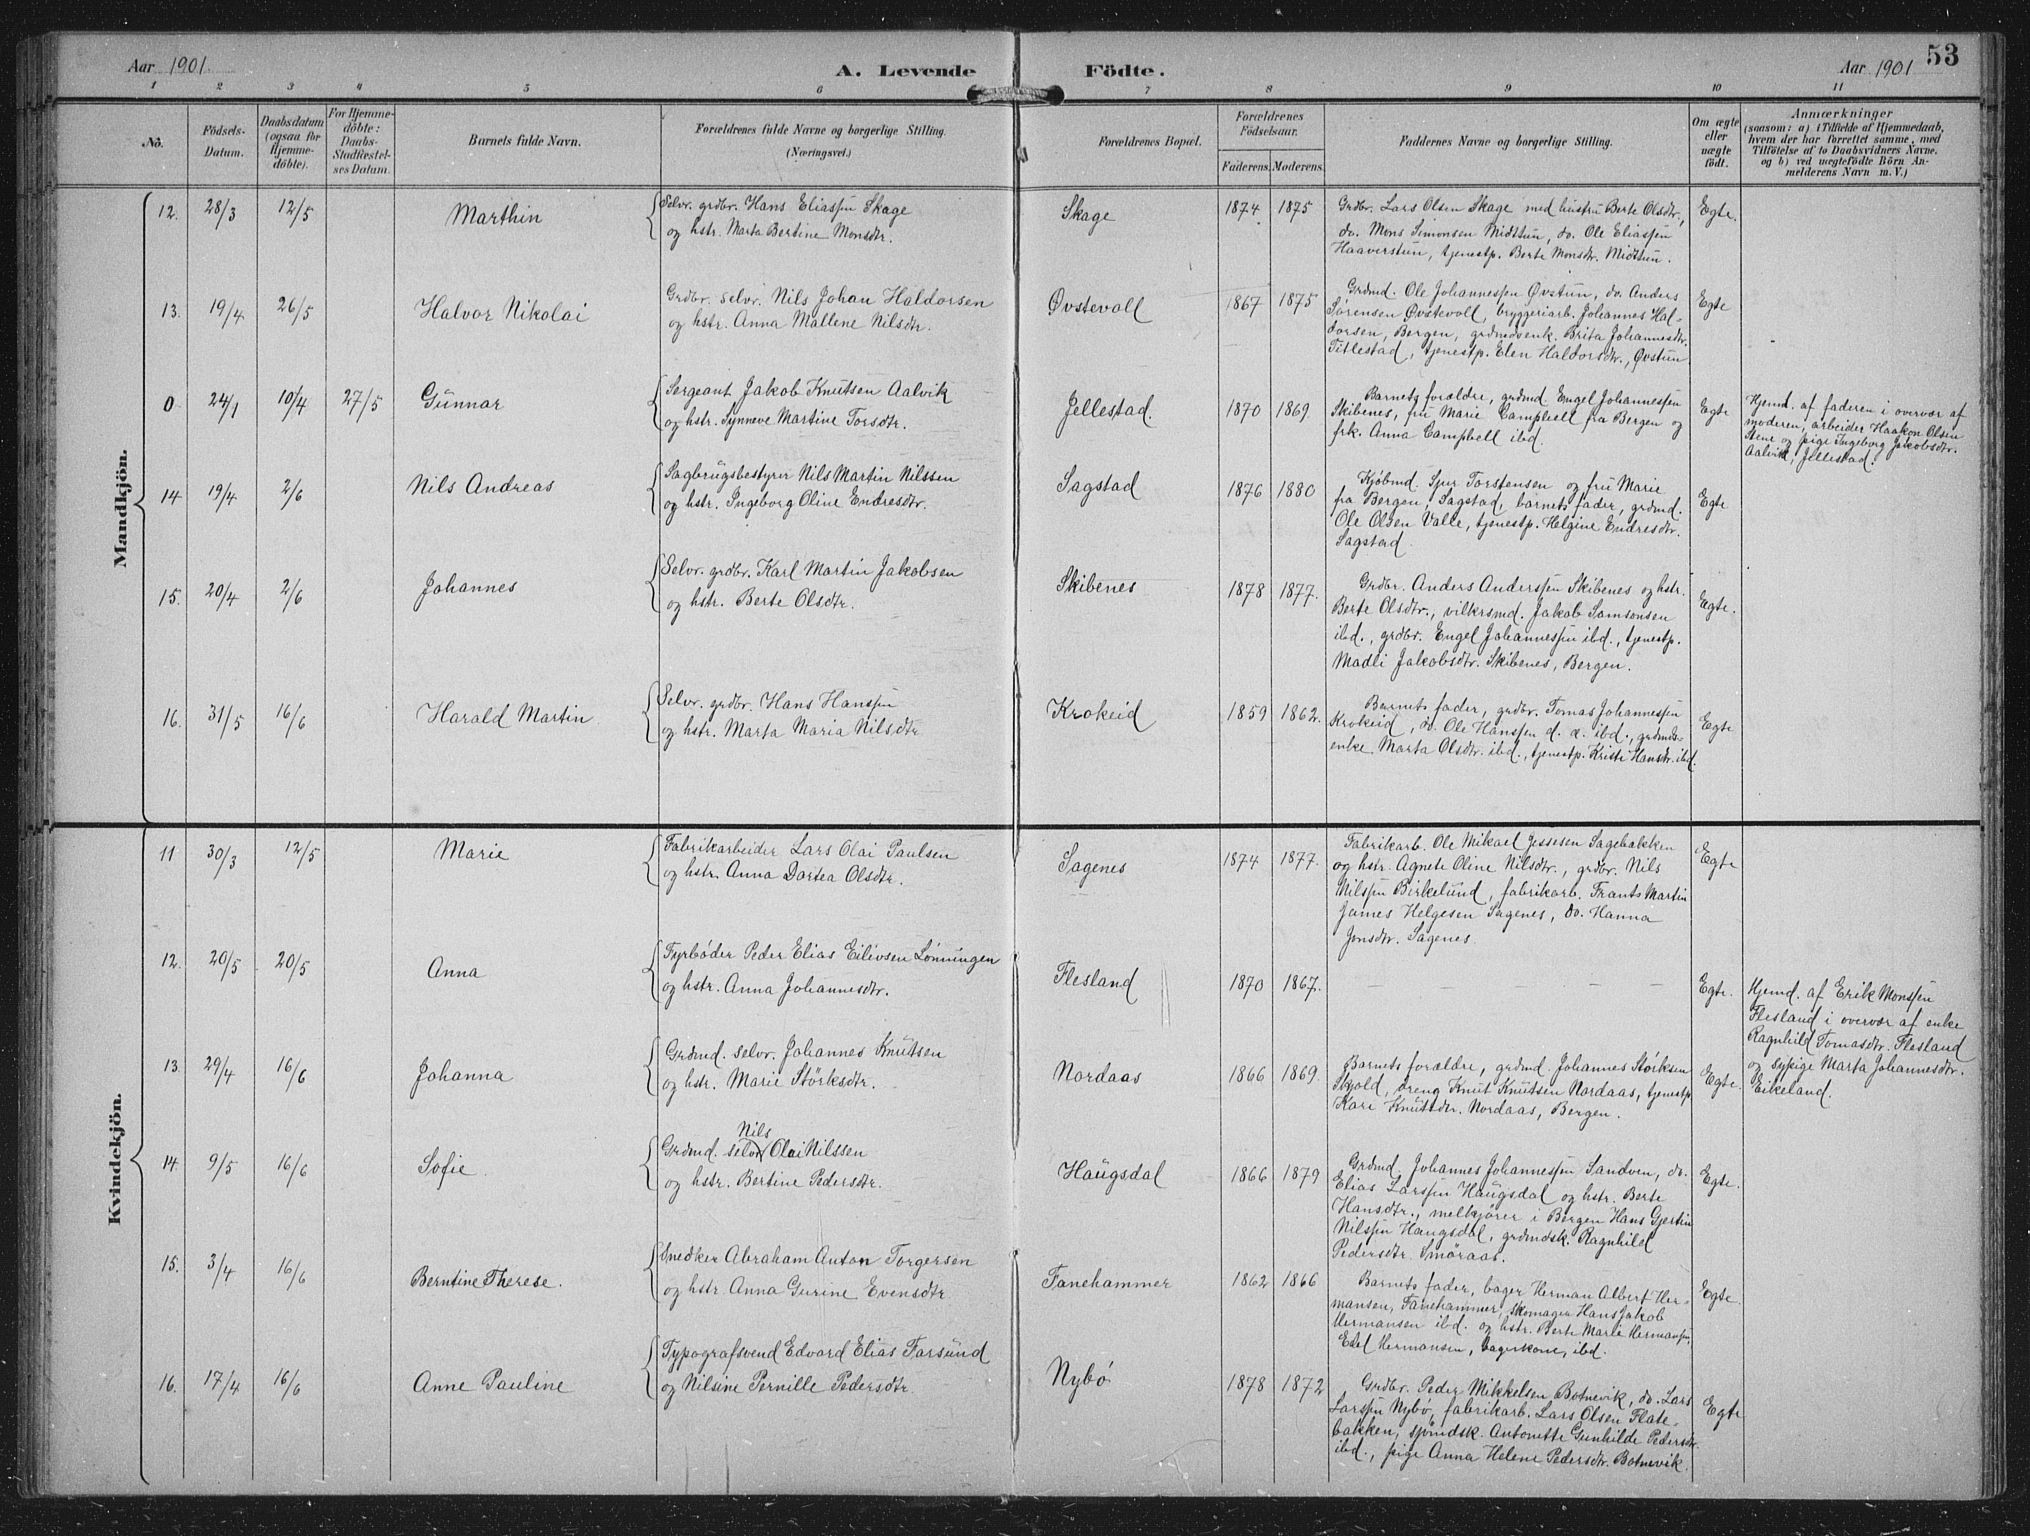 53
Aar 1901.
A. Levende Födte.
Aar 1901
1 2 3 4 5 6 7 8 9 10 11
No.
Födsels-
Datum.
Daabsdatum
(ogsaa for
Hjemme-
döbte).
For Hjemme-
döbte:
Daabs-
Stadfæstel-
ses Datum.
Barnets fulde Navn.
Forældrenes fulde Navne og borgerlige Stilling.
(Næringsvei.)
Forældrenes Bopæl.
Forældrenes
Födselsaar.
Faderens. Moderens.
Faddernes Navne og borgerlige Stilling.
Om ægte
eller
uægte
födt.
Anmærkninger
(saasom: a) i Tilfælde af Hjemmedaab,
hvem der har forrettet samme, med
Tilföielse af to Daabsvidners Navne.
og b) ved uægtefödte Börn An-
melderens Navn m. V.)
Mandkjön.
12. 28/3 12/5 Marthin
Selv. grdbr. Hans Eliassen Skage
og hstr. Marta Bertine Monsdtr.
Skage 1874 1875
Grdbr. Lars Olsen Skage med hustru Berte Olsdtr.,
do. Mons Simonsen Midttun, do. Ole Eliassen
Haaverstun, tjenestp. Berte Monsdtr. Midttun.
Egte.
13. 19/4 26/5 Halvor Nikolai
Grdbr. selv. Nils Johan Haldorsen
og hstr. Anna Mallene Nilsdtr.
Øvstevoll 1867 1875
Grdmd. Ole Johannessen Øvstun, do. Anders
Sørensen Øvstevoll, bryggeriarb. Johannes Hal-
dorsen, Bergen, grdmdsenk. Brita Johannesdtr.
Titlestad, tjenestp. Elen Haldorsdtr., Øvstun
Egte
0 24/1 10/4 27/5 Gunnar
Sergeant Jakob Knutsen Aalvik
og hstr. Synneve Martine Torsdtr.
Jellestad. 1870 1869
Barnets forældre, grdmd. Engel Johannessen
Skibenes, fru Marie Campbell fra Bergen og
frk. Anna Campbell ibd.
Egte
Hjemd. af faderen i overvær af
moderen, arbeider Haakon Olsen
Stene og pige Ingeborg Jakobsdtr.
Aalvik, Jellestad.
14 19/4 2/6 Nils Andreas
Sagbrugsbestyrer Nils Martin Nilssen
og hstr. Ingeborg Oline Endresdtr.
Sagstad 1876 1880
Kjøbmd. Sjur Torstensen og fru Marie
fra Bergen, Sagstad, barnets fader, grdmd.
Ole Olsen Valle, tjenestp. Helgine Endresdtr.
Sagstad.
Egte
15. 20/4 2/6 Johannes
Selv. grdbr. Karl Martin Jakobsen
og hstr. Berte Olsdtr.
Skibenes 1878 1877.
Grdbr. Anders Anderssen Skibenes og hstr.
Berte Olsdtr., vilkrsmd. Jakob Samsonsen
ibd., grdbr. Engel Johannessen ibd., tjenestp.
Madli Jakobsdtr. Skibenes, Bergen.
Egte.
16. 31/5 16/6 Harald Martin
Selv. grdbr. Hans Hanssen
og hstr. Marta Maria Nilsdtr.
Krokeid 1859 1862.
Barnets fader, grdbr. Tomas Johannessen
Krokeid, do. Ole Hanssen d. æ. ibd., grdmds-
enke Marta Olsdtr. ibd., tjenestp. Kristi Hansdtr. ibd.
Egte
Kvindekjön.
11 30/3 12/5 Marie
Fabrikarbeider Lars Olai Paulsen
og hstr. Anna Dortea Olsdtr.
Sagenes 1874 1877.
Fabrikarb. Ole Mikael Jessesen Sagebakken
og hstr. Agnete Oline Nilsdtr., grdbr. Nils
Nilssen Birkelund, fabrikarb. Frants Martin
James Helgesen Sagenes, do. Hanna
Jonsdtr. Sagenes.
Egte
12. 20/5 20/5 Anna
Fyrbøder Peder Elias Eilivsen Lønningen
og hstr. Anna Johannesdtr.
Flesland 1870 1867.
Egte.
Hjemd. af Erik Monssen
Flesland i overvær af enke
Ragnhild Tomasdtr. Flesland
og sypige Marta Johannesdtr.
Eikeland.
13. 29/4 16/6 Johanna
Grdmd. selv. Johannes Knutsen
og hstr. Marie Störksdtr.
Nordaas 1866 1869.
Barnets forældre, grdmd. Johannes Størksen
Skjold, dreng Knut Knutsen Nordaas, tjenestp.
Kari Knutsdtr. Nordaas, Bergen.
Egte.
14. 9/5 16/6 Sofie.
Nils
Grdmd. selv. Olai Nilssen
og hstr. Bertine Pedersdtr.
Haugsdal 1866 1879
Grdmd. Johannes Johannessen Sandven, do.
Elias Larssen Haugsdal og hstr. Berte
Hansdtr., melkjører i Bergen Hans Gjertin
Nilssen Haugsdal, grdmdsk. Ragnhild
Pedersdtr. Smöraas.
Egte.
15. 3/4 16/6 Berntine Therese.
Snedker Abraham Anton Torgersen
og hstr. Anna Gurine Evensdtr.
Fanehammer 1862 1866
Barnets fader, bager Herman Albert Her-
mansen, Fanehammer, skomager Hans Jakob
Hermansen ibd. og hstr. Berte Marie Hermansen,
Edel Hermansen, bagerkone, ibd.
Egte.
16. 17/4 16/6 Anne Pauline
Typografsvend Edvard Elias Farsund
og Nilsine Pernille Pedersdtr.
Nybø 1878 1872
Grdbr. Peder Mikkelsen Botnevik, do. Lars
Larssen Nybø, fabrikarb. Lars Olsen Flate-
bakken, sjömdsk. Antonette Gunhilde Pedersdtr.
ibd., pige Anna Helene Pedersdtr. Botnevik.
Egte